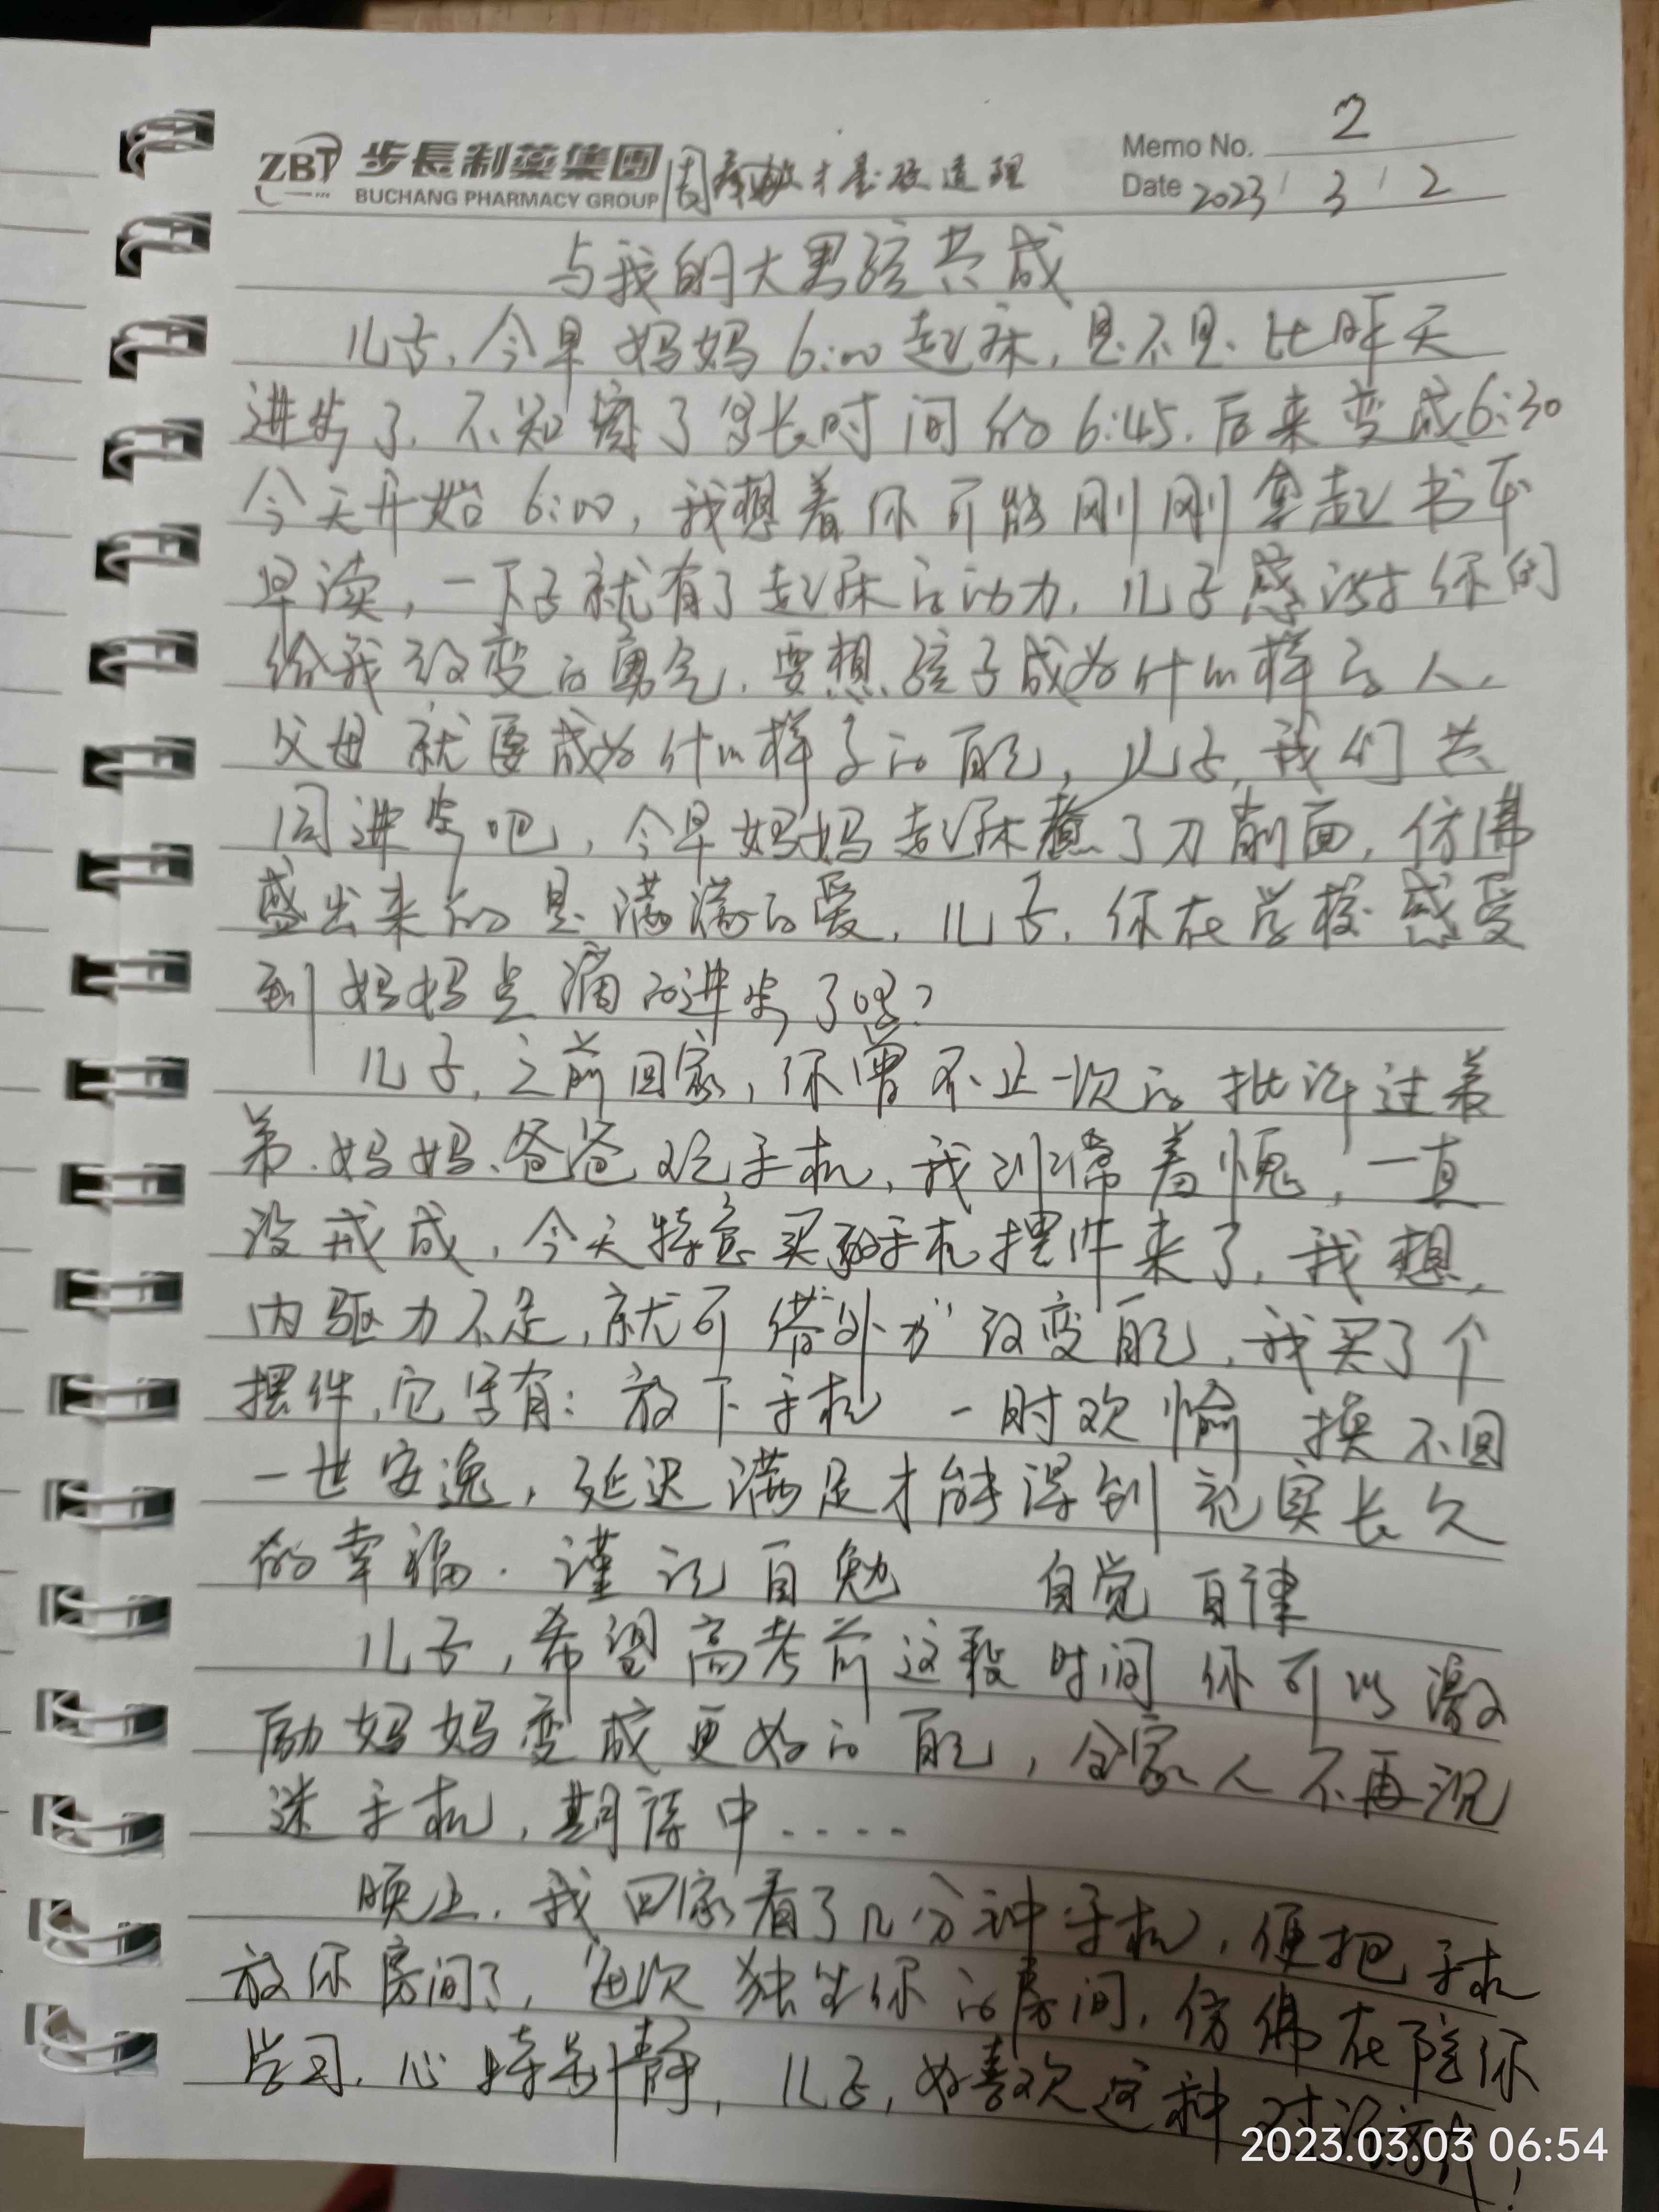 ZBT 步長制薬集团
BUCHANG PHARMACY GROUP
Memo No. 2
Date 2023/3/2
与我的大男孩共成
儿子,今早妈妈6:00起床,是不是比昨天
进步了.不知窝了多长时间的6:45.后来变成6:30
今天开始6:00,我想着你可能刚刚拿起书本
早读,一下子就有了起床的动力,儿子感谢你的
给我改变的勇气.要想孩子成为什么样的人,
父母就要成为什么样子的自己,儿子,我们共
同进步吧,今早妈妈起床煮了刀削面,仿佛
盛出来的是满满的爱,儿子,你在学校感受
到妈妈点滴的进步了吗?
儿子,之前回家,你曾不止一次的批评过着
弟.妈妈.爸爸玩手机,我非常羞愧,一直
没戒成,今天特意买的手机摆件来了,我想,
内驱力不足,就可借"外力"改变自己,我买了个
摆件,它写有:放下手机 一时欢愉 换不回
一世安逸,延迟满足才能得到充实长久
的幸福.谨记自勉 自觉 自律
儿子,希望高考前这段时间你可以激
励妈妈变成更好的自己,全家人不再沉
迷手机,期待中....
晚上,我回家看了几分钟手机,便把手机
放你房间了,每次独坐你的房间,仿佛在陪你
学习,心特别静,儿子,好喜欢这种
2023.03.03 06:54